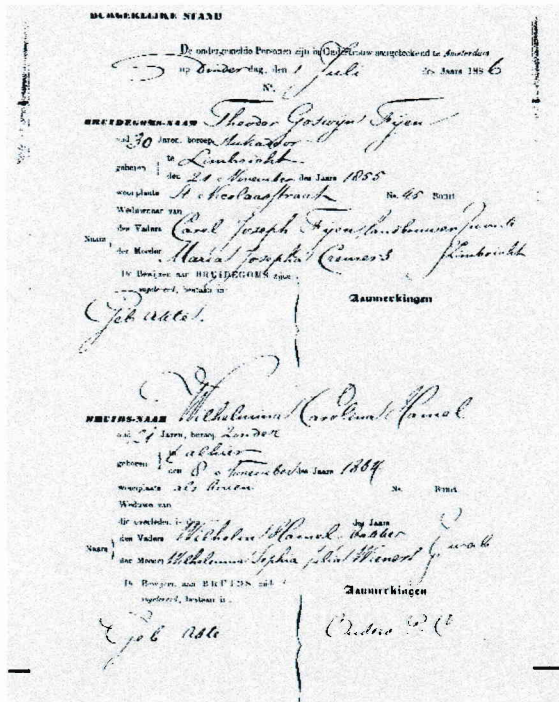 BURGERLIJKE STAND
De ondergemelde Personen zijn in Ondertrouw aangeteekend te Amsterdam
op Donderdag, den 1 Juli des Jaars 1886
No.
BRUIDEGOMS-NAAM Theodor Goswyn Fijen
oud 30 Jaren, beroep
geboren te Limbricht
den 21 November des Jaars 1855
woonplaats St Nicolaasstraat No. 45 Buurt
Weduwnaar van
Naam des Vaders Carel Joseph Fijen Landbouwer
der Moeder Maria Josepha Creuers Limbricht
De Bewijzen aan BRUIDEGOMS zijde
ingeleverd, bestaan in:
Aanmerkingen
Geb Acte
BRUIDS-NAAM Wilhelmina Carolina Hamel
oud 21 Jaren, beroep Zonder
geboren te alhier
den 8 November des Jaars 1864
woonplaats als boven No. Buurt
Weduwe van
die overleden is des Jaars
Naam des Vaders Wilhelm Hamel Bakker
der Moeder Wilhelmina Sophia Julia Wienert
De Bewijzen aan BRUIDS zijde
ingeleverd, bestaan in:
Aanmerkingen
Geb Acte
Ouders